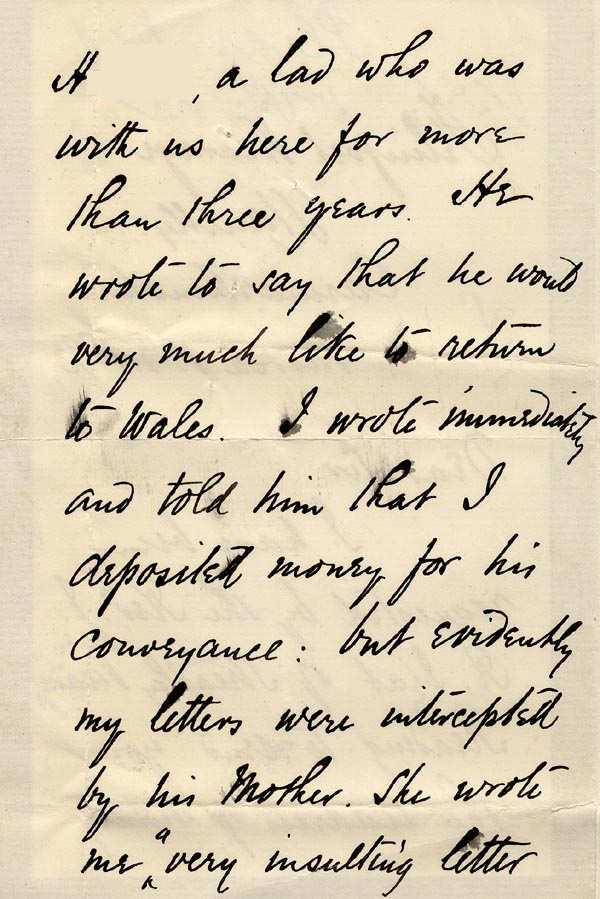 H , a lad who was
with us here for more
than three years. He
wrote to say that he would
very much like to return
to Wales. I wrote immediately
and told him that I
deposited money for his
conveyance: but evidently
my letters were intercepted
by his Mother. She wrote
me a very insulting letter